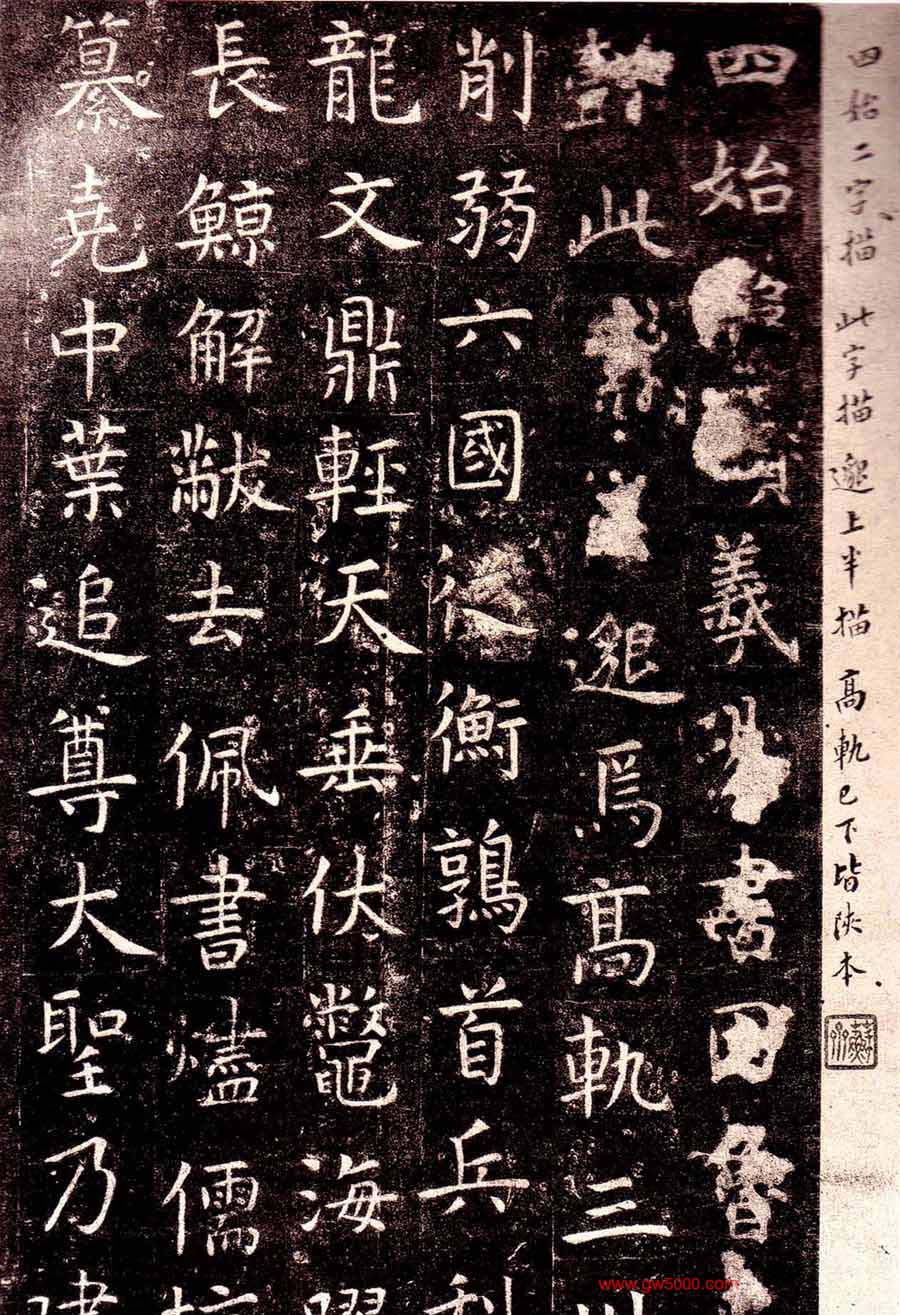 四始二字描 此字描 邈上半描 高軌已下皆陝本
四始羲書因魯
此邈焉高軌三川
削弱六國從衡鶉首兵利
龍文鼎輕天垂伏鼈海躍
長鯨解黻去佩書燼儒坑
纂堯中葉追尊大聖乃建
www.gw5000.com